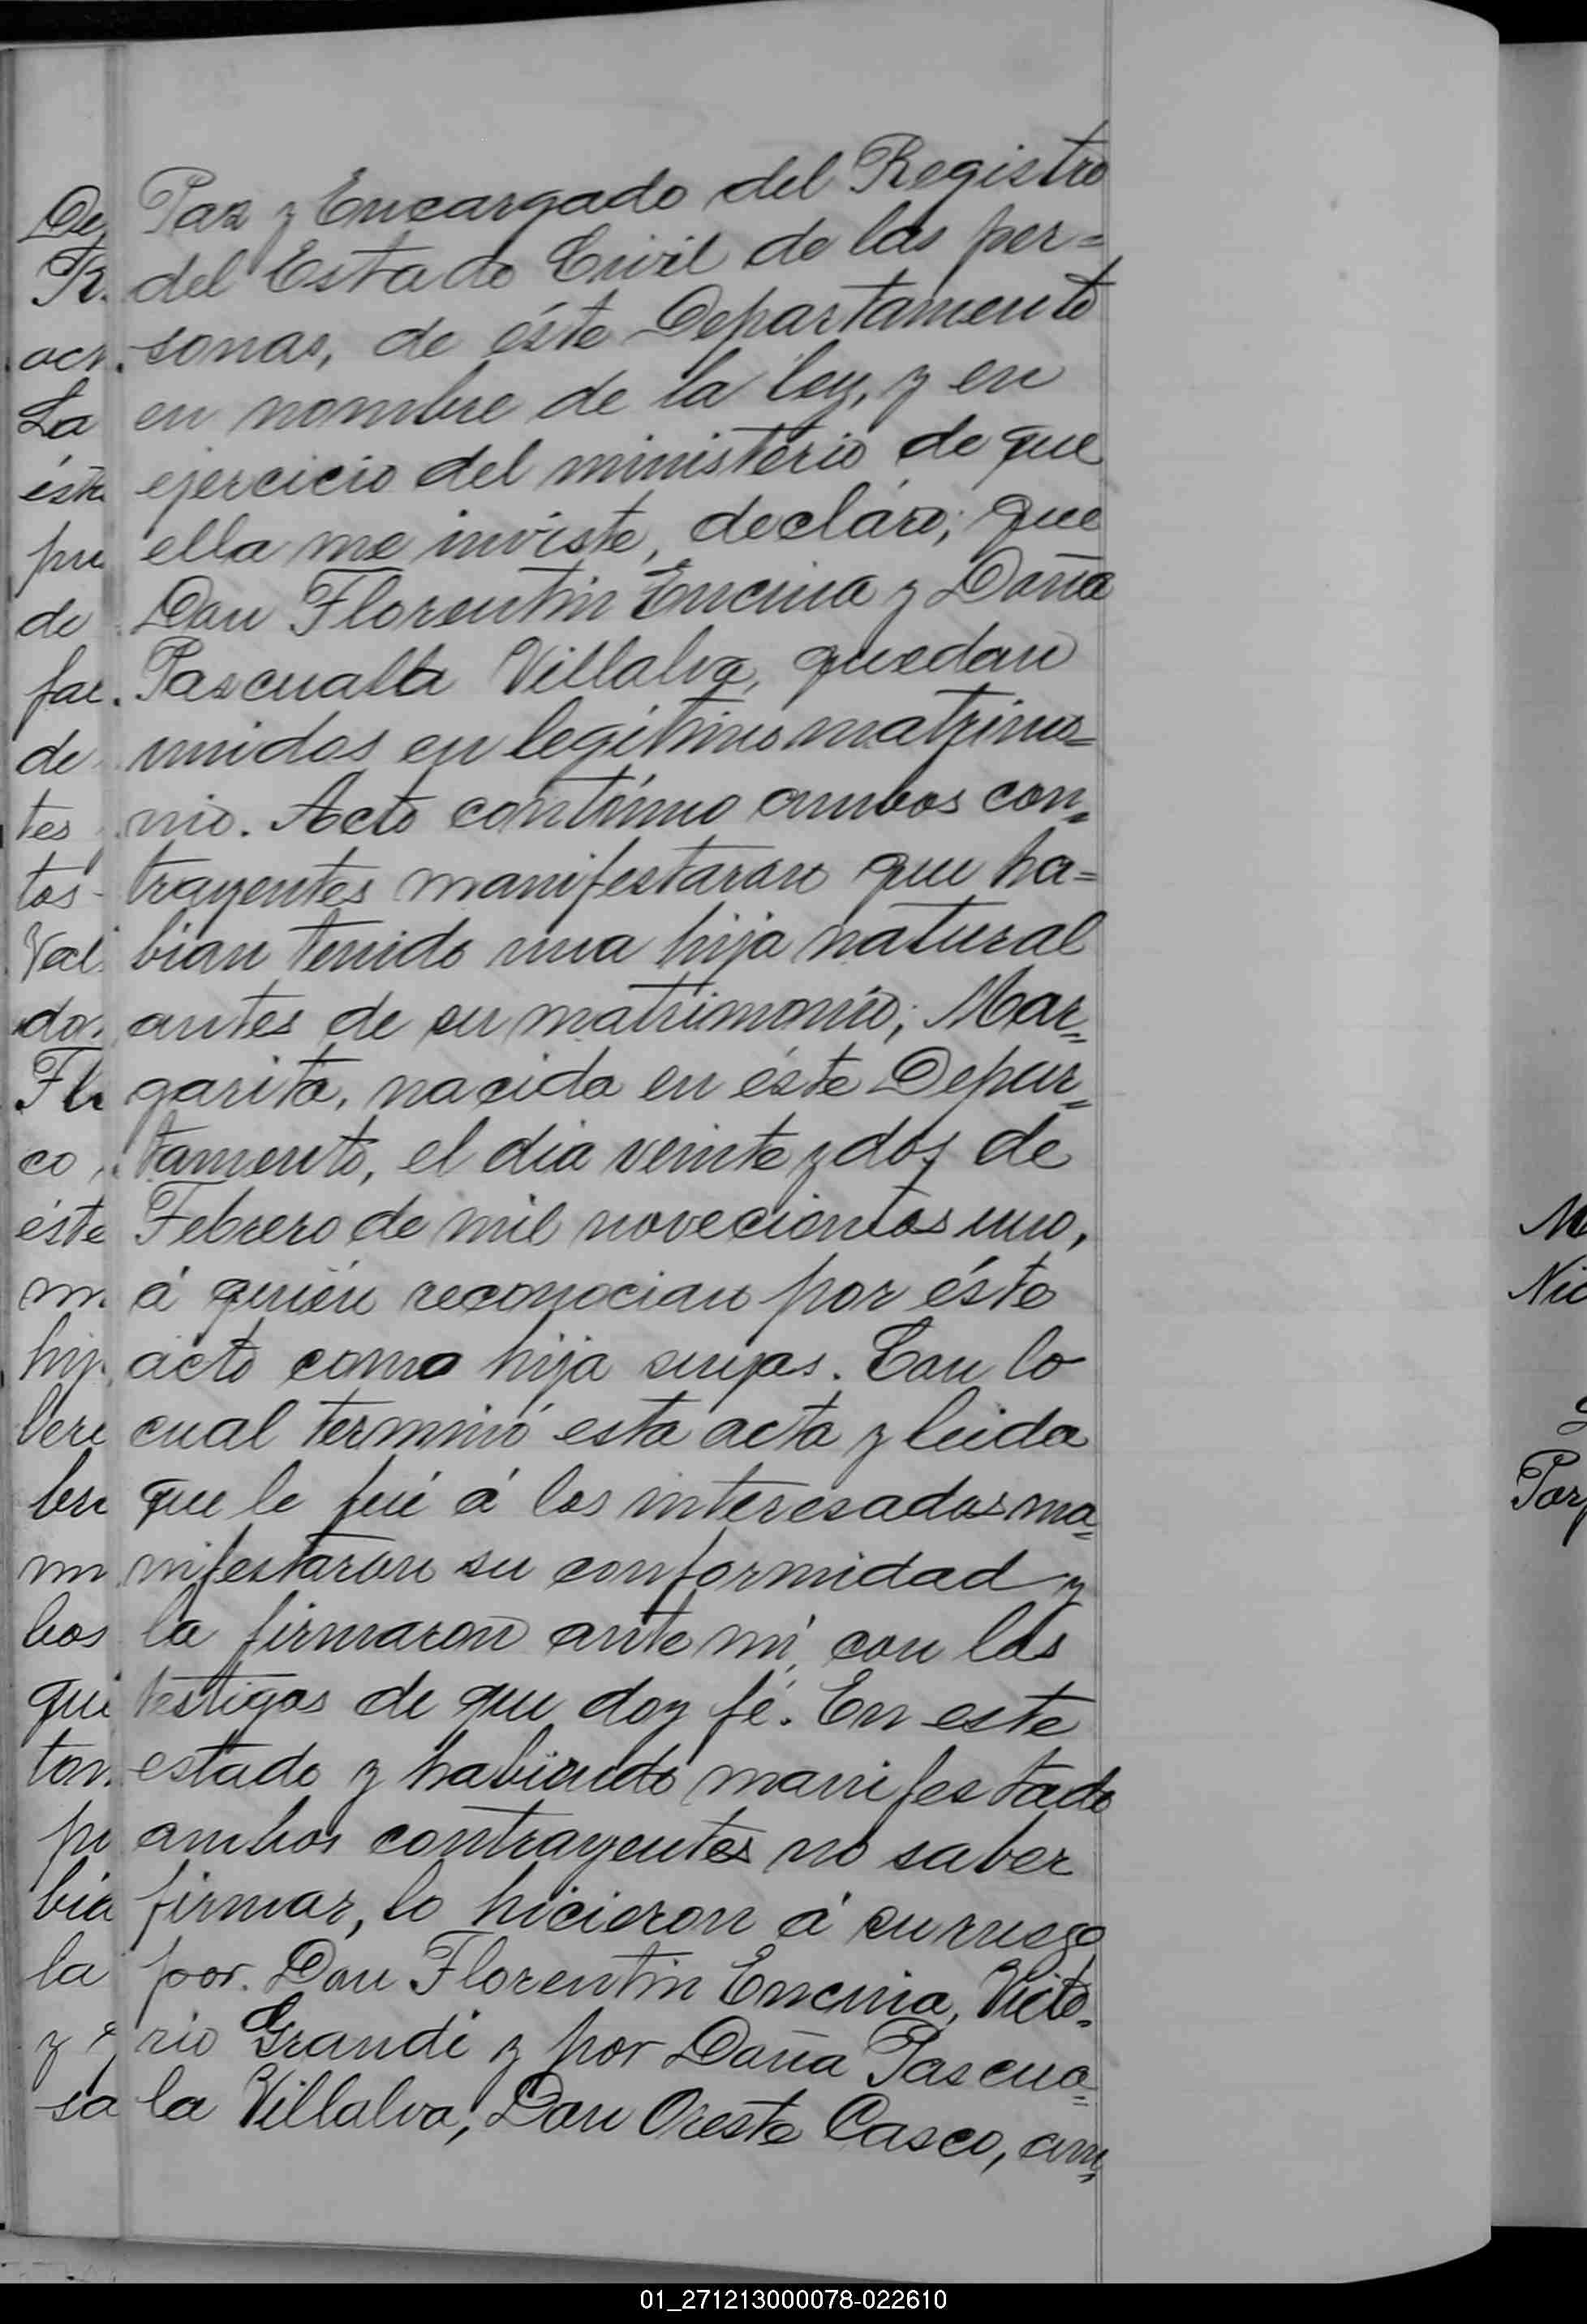 Paz y Encargado del Registro
del Estado Civil de las per=
sonas, de éste Departamento
en nombre de la ley, y en
ejercicio del ministerio de que
ella me inviste, declaro; que
Don Florentin Encina y Doña
Pascuala Villalva, quedan
unidos en legítimo matrimo=
nio. Acto contínuo ambos con=
trayentes manifestaron que ha=
bian tenido una hija natural
antes de su matrimonio; Mar=
garita, nacida en éste Depar=
tamento, el dia veinte y dos de
Febrero de mil novecientos uno,
á quién reconocian por éste
acto como hija suyas. Con lo
cual terminó esta acta y leida
que le fué á los interesados ma=
nifestaron su conformidad y
la firmaron ante mí, con los
testigos de que doy fé. En este
estado y habiendo manifestado
ambos contrayentes no saber
firmar, lo hicieron á su ruego
por. Don Florentin Encina, Victo=
rio Grandi y por Doña Pascua=
la Villalva, Don Oreste Casco, am=
De
R.
La
éste
pu
de
fac
de
tes
tos
Val
do
Fl
co
éste
m
hij
ber
bos
qui
ton
pr
bia
la
y
sa
M
Nic
Por
01_271213000078-022610